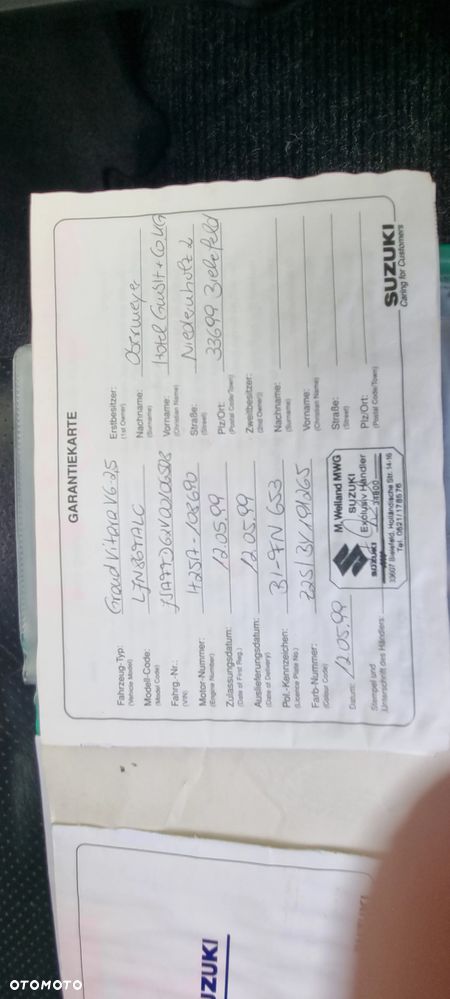 GARANTIEKARTE
Fahrzeug-Typ: Grand Vitara V6 2,5
(Vehicle Model)
Modell-Code:
(Model Code)
Fahrg.-Nr.:
(VIN)
Motor-Nummer:
(Engine Number)
Zulassungsdatum: 12.05.99
(Date of First Reg.)
Auslieferungsdatum: 12.05.99
(Date of Delivery)
Pol.-Kennzeichen: BI-FN 653
(Licence Plate No.)
Farb-Nummer:
(Colour Code)
Datum: 12.05.99
Stempel und
Unterschrift des Händlers:
M. Welland MWG
SUZUKI
Exclusiv Händler
SUZUKI
33607 Bielefeld, Holländische Str. 14-16
Tel. 0521/178576
Erstbesitzer:
(1st Owner)
Nachname: Obermeyer
(Surname)
Vorname: Hotel GmbH + Co KG
(Christian Name)
Straße: Niedernholz 2
(Street)
Plz/Ort: 33699 Bielefeld
(Postal Code/Town)
Zweitbesitzer:
(2nd Owner)
Nachname:
(Surname)
Vorname:
(Christian Name)
Straße:
(Street)
Plz/Ort:
(Postal Code/Town)
SUZUKI
Caring for Customers
UZUKI
OTOMOTO